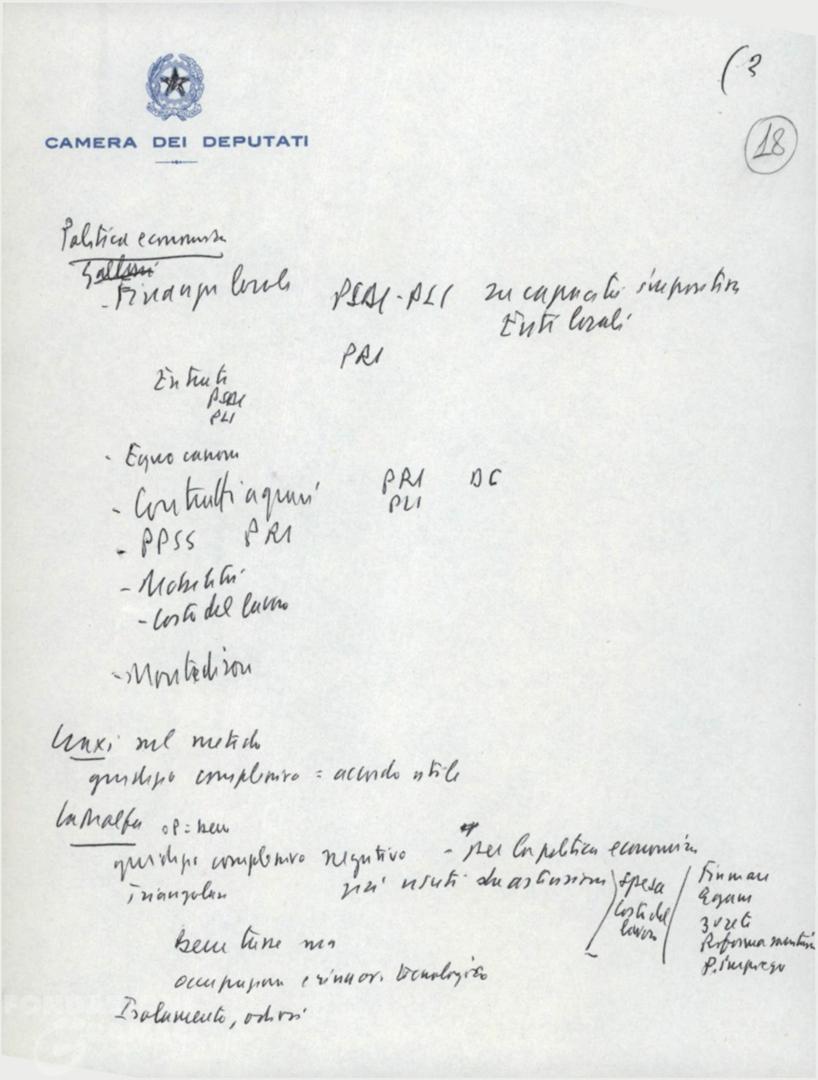 (3
18
CAMERA DEI DEPUTATI
Politica economica
- Finanza locale PSDI - PLI su capacità impositiva
Enti locali
PRI
Entrate
PSDI
PLI
- Equo canone
- Contratti agrari PRI DC
PLI
- PPSS PRI
- Mobilità
- Costo del lavoro
- Montedison
Craxi sul metodo
giudizio complessivo = accordo utile
La Malfa OP = bene
giudizio complessivo negativo - per la politica economica
Triangolare
spesa
costo del
lavoro
Finmare
Egam
3 reti
Riforma sanitaria
P. impiego
bene
occupazione e innov. tecnologico
Isolamento,